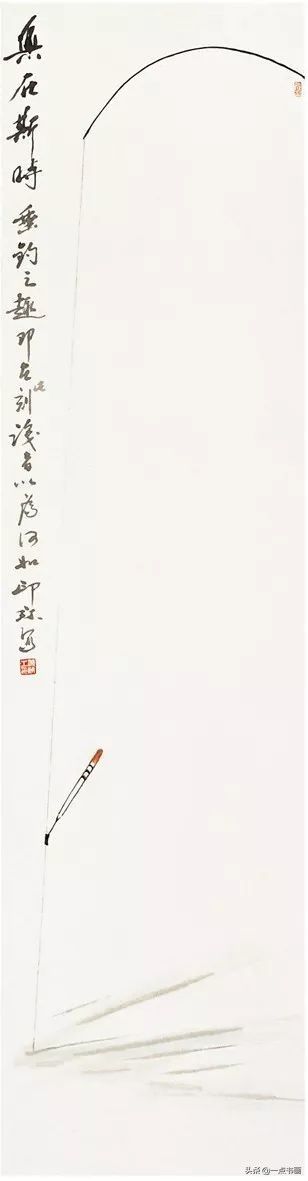 樂在斯時 垂釣之趣即在此刻識者以為何如印
头条 @一点书画